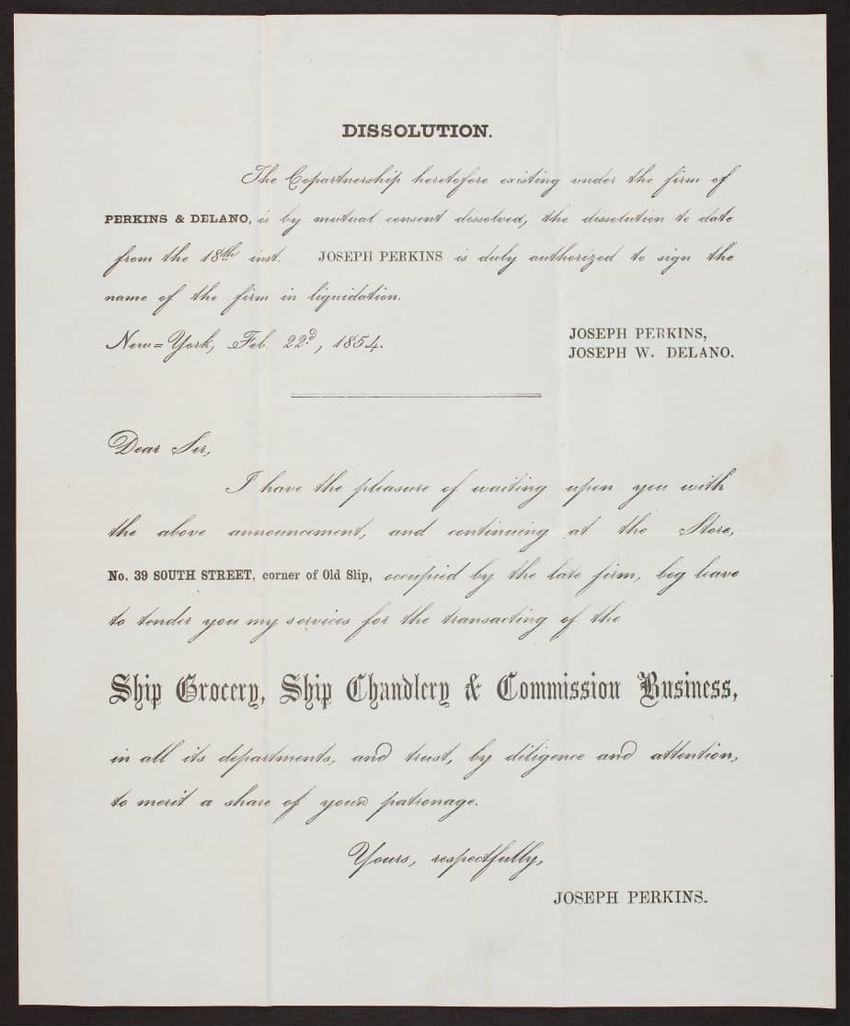 DISSOLUTION.
The Copartnership heretofore existing under the firm of
PERKINS & DELANO, is by mutual consent dissolved, the dissolution to date
from the 18th inst. JOSEPH PERKINS is duly authorized to sign the
name of the firm in liquidation.
New=York, Feb. 22d, 1854.
JOSEPH PERKINS,
JOSEPH W. DELANO.
Dear Sir,
I have the pleasure of waiting upon you with
the above announcement, and continuing at the Store,
No. 39 SOUTH STREET, corner of Old Slip, occupied by the late firm, beg leave
to tender you my services for the transacting of the
Ship Grocery, Ship Chandlery & Commission Business,
in all its departments, and trust, by diligence and attention,
to merit a share of your patronage.
Yours, respectfully,
JOSEPH PERKINS.